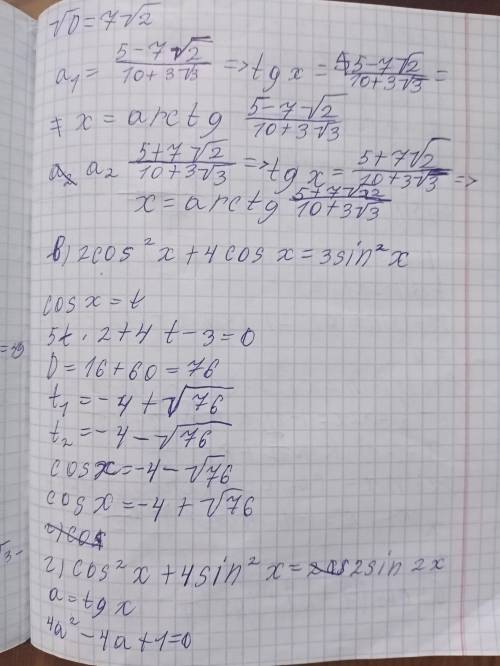 √D = 7√2
a₁ = (5-7√2)/(10+3√3) => tg x = (5-7√2)/(10+3√3) =
x = arctg (5-7√2)/(10+3√3)
a₂ (5+7√2)/(10+3√3) => tg x = (5+7√2)/(10+3√3) =>
x = arctg (5+7√2)/(10+3√3)
в) 2cos²x + 4cos x = 3sin²x
cos x = t
5t · 2 + 4t - 3 = 0
D = 16 + 60 = 76
t₁ = -4 + √76
t₂ = -4 - √76
cos x = -4 - √76
cos x = -4 + √76
г) cos²x + 4sin²x = 2sin 2x
a = tg x
4a² - 4a + 1 = 0